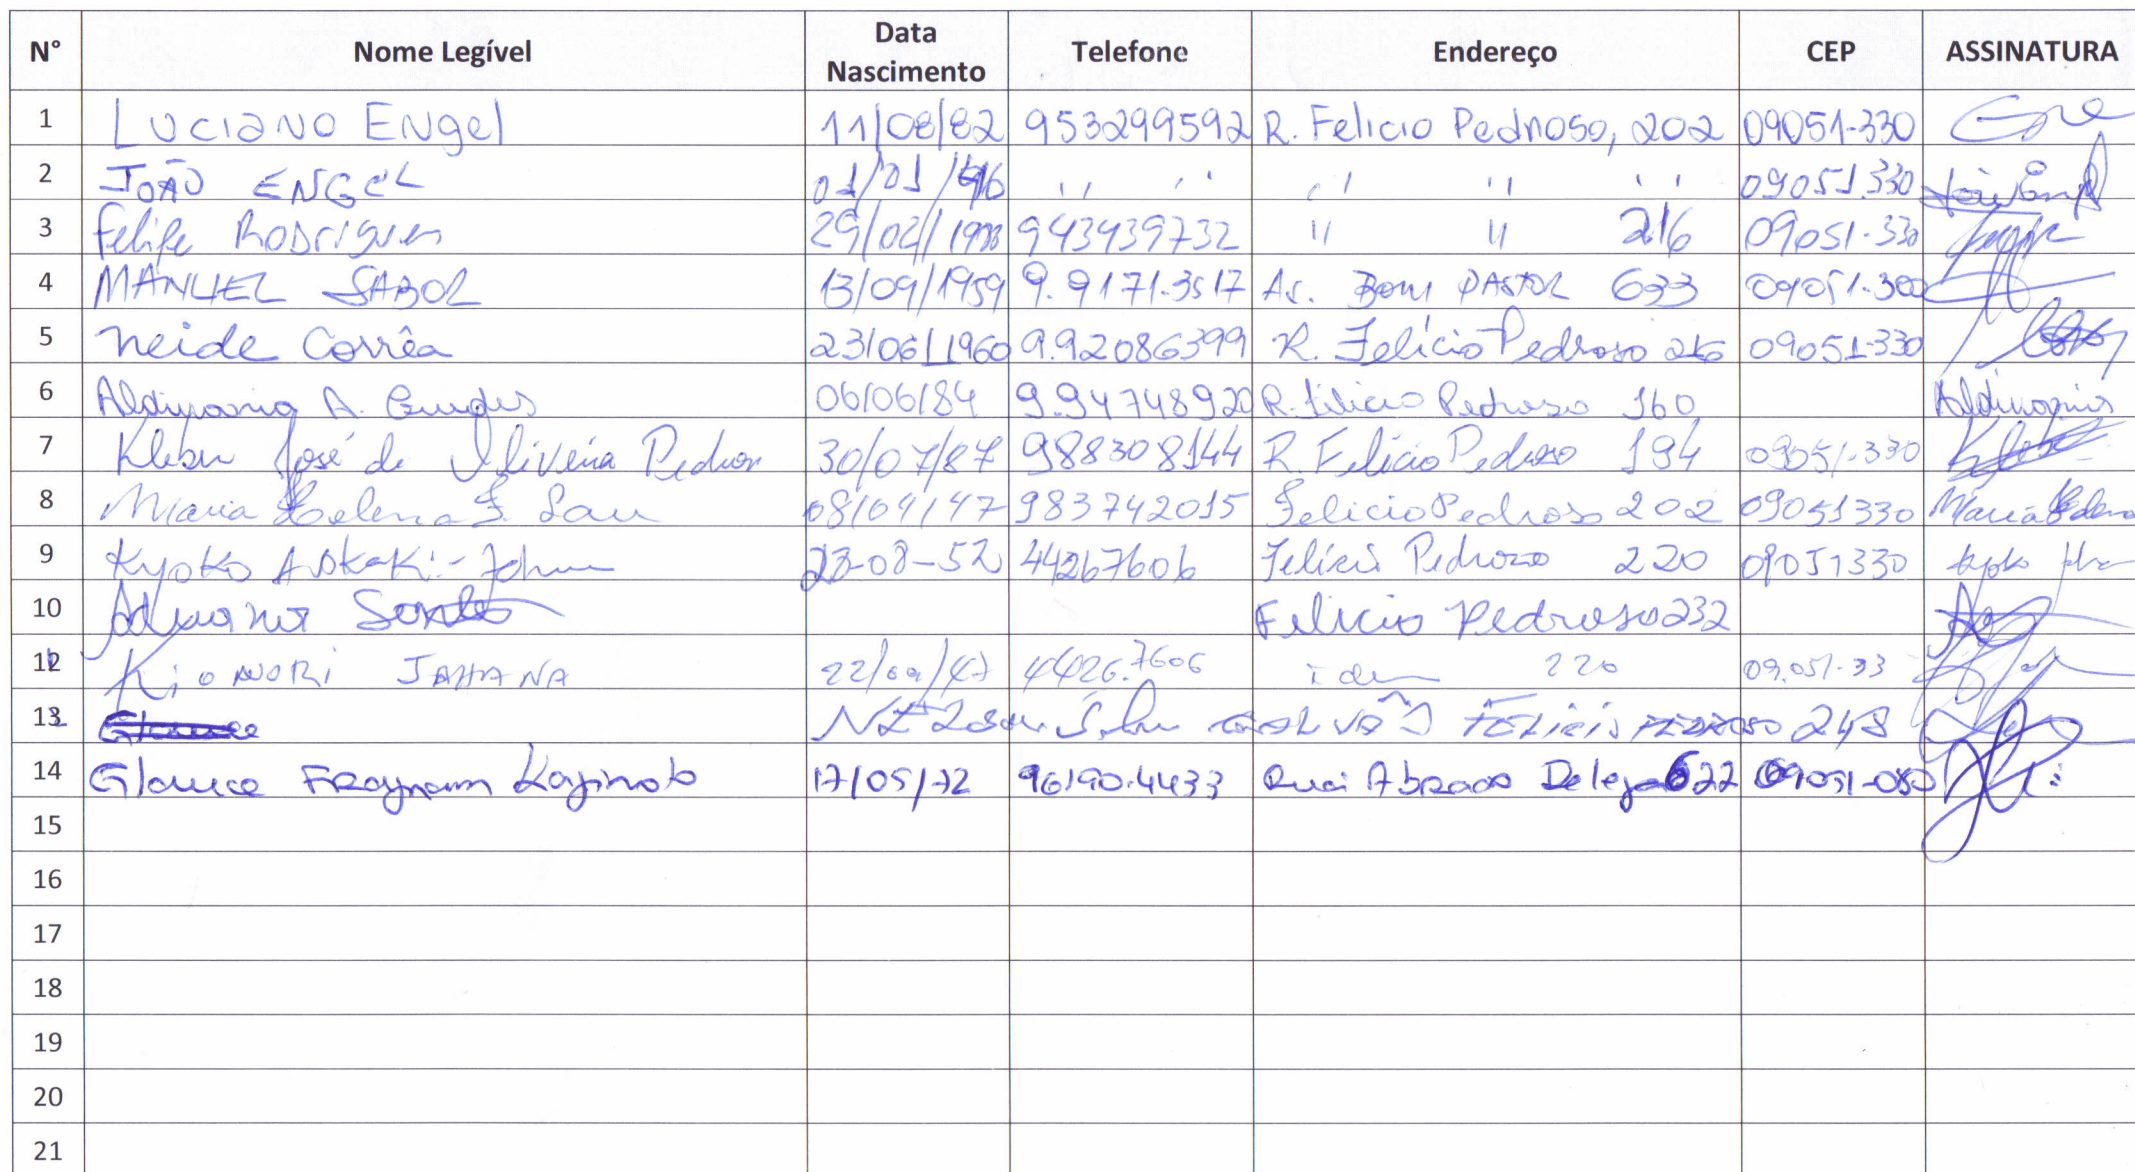 N° Nome Legível Data Nascimento Telefone Endereço CEP ASSINATURA
1 Luciano Engel 11/08/82 953299592 R. Felicio Pedroso, 202 09051-330
2 JOÃO ENGEL 01/01/ ,, ,, ,, ,, ,, 09051.330
3 Felipe Rodrigues 29/02/ 943939732 ,, ,, 216 09051-330
4 MANUEL SABOL 13/09/1959 9.9171-3517 Av. Bom PASTOR 633 09051-300
5 Neide Corrêa 23/06/1960 9.92086399 R. Felício Pedroso 216 09051-330
6 A. 06/06/84 9.94748920 R. Felicio Pedroso 160
7 Kleber José de Oliveira 30/07/87 988308144 R. Felício Pedroso 194 09051-330
8 Maria Helena F. 08/09/47 983742015 Felicio Pedroso 202 09051330 Maria Helena
9 Kyoko 23-08-52 44267606 Felício Pedrozo 220 09051330 Kyoko
10 Felicio Pedroso 232
12 KiONORi JAHANA 22/09/47 4426.7606 idem 220 09.051-33
13 Silva 248
14 Glauce Kajimoto 17/05/72 96190.4433 Rua 622 09051-080
15
16
17
18
19
20
21